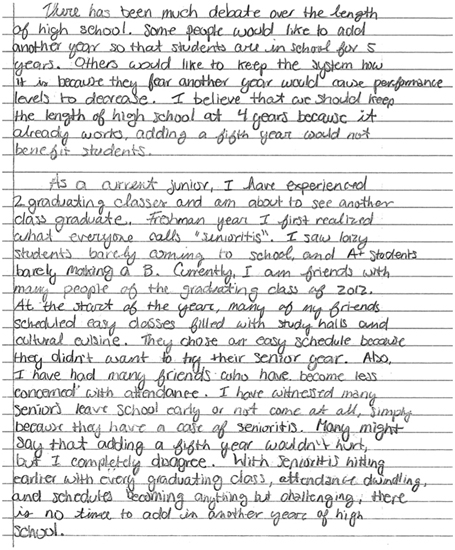 There has been much debate over the length
of high school. Some people would like to add
another year so that students are in school for 5
years. Others would like to keep the system how
it is because they fear another year would cause performance
levels to decrease. I believe that we should keep
the length of high school at 4 years because it
already works, adding a fifth year would not
benefit students.
As a current junior, I have experienced
2 graduating classes and am about to see another
class graduate. Freshman year I first realized
what everyone calls "senioritis". I saw lazy
students barely coming to school, and A+ students
barely making a B. Currently, I am friends with
many people of the graduating class of 2012.
At the start of the year, many of my friends
scheduled easy classes filled with study halls and
cultural cuisine. They chose an easy schedule because
they didn't want to try their senior year. Also,
I have had many friends who have become less
concerned with attendance. I have witnessed many
seniors leave school early or not come at all, simply
because they have a case of senioritis. Many might
say that adding a fifth year wouldn't hurt,
but I completely disagree. With senioritis hitting
earlier with every graduating class, attendance dwindling,
and schedules becoming anything but challenging, there
is no time to add in another year of high
school.